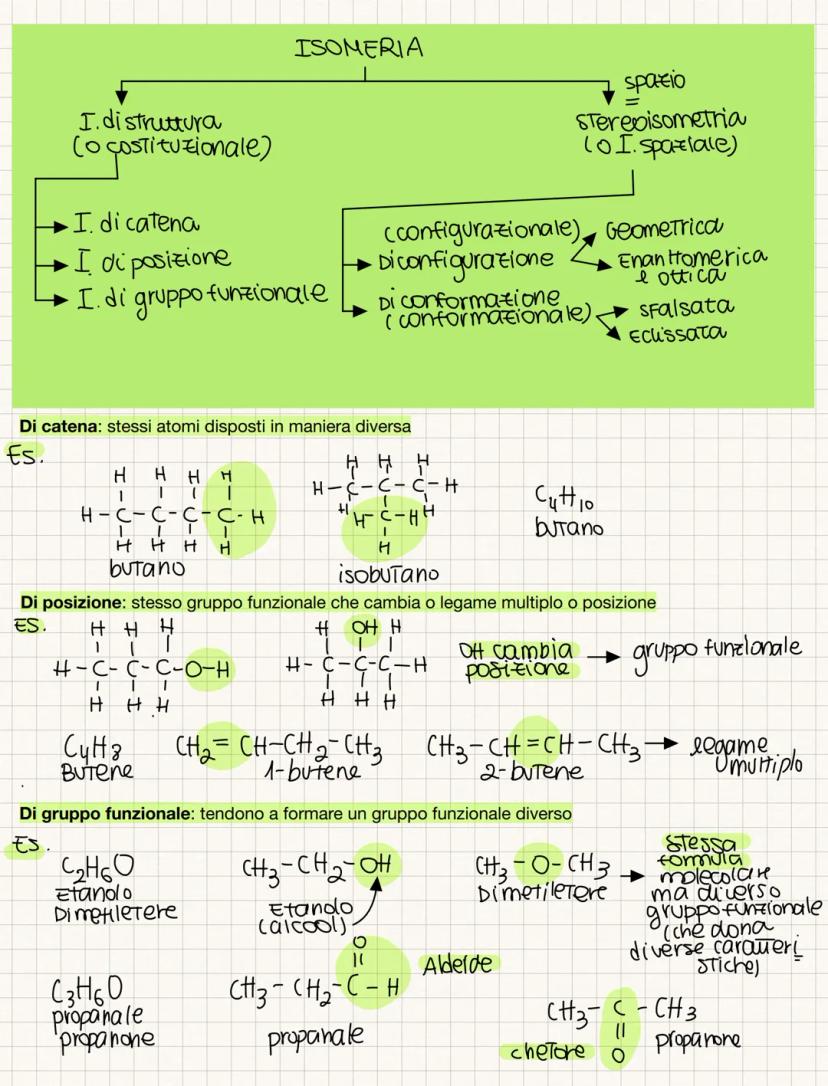 ISOMERIA
I. di struttura
(o costituzionale)
spazio
=
stereoisometria
(o I. spaziale)
I. di catena
I. di posizione
I. di gruppo funzionale
(configurazionale)
Di configurazione
Geometrica
Enantiomerica
e ottica
Di conformazione
(conformazionale)
sfalsata
Eclissata
Di catena: stessi atomi disposti in maniera diversa
Es.
H H H H
H-C-C-C-C-H
H H H H
butano
H H H
H-C-C-C-H
H H-C-H H
H
isobutano
C4H10
butano
Di posizione: stesso gruppo funzionale che cambia o legame multiplo o posizione
ES.
H H H
H-C-C-C-O-H
H H H
H OH H
H-C-C-C-H
H H H
OH cambia
posizione
gruppo funzionale
C4H8
Butene
CH2=CH-CH2-CH3
1-butene
CH3-CH=CH-CH3
2-butene
legame
multiplo
Di gruppo funzionale: tendono a formare un gruppo funzionale diverso
Es.
C2H6O
Etanolo
Dimetiletere
CH3-CH2-OH
Etanolo
(alcool)
CH3-O-CH3
Dimetiletere
stessa
formula
molecolare
ma diverso
gruppo funzionale
(che dona
diverse caratteri
stiche)
C3H6O
propanale
propanone
O
=
CH3-CH2-C-H
Aldeide
propanale
CH3-C-CH3
=
O
chetone
propanone